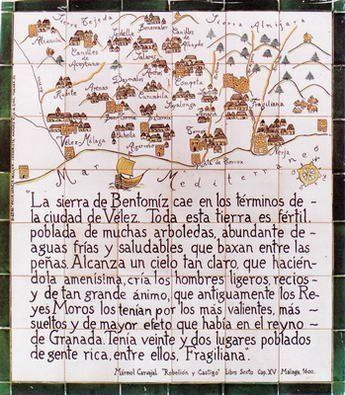 Sierra Tejeda
Sierra Almijara
Alcaucín
Sedella
Canillas
de
Aceytuno
Canillas
Albayda
Salares
Rubite
Arenas
Daymalos
Archez
Competa
Corumbela
Sayalonga
Frigiliana
Velez-
Málaga
Algarrobo
Nerja
Mar Mediterráneo
"La sierra de Bentomíz cae en los términos de
la ciudad de Vélez. Toda esta tierra es fértil,
poblada de muchas arboledas, abundante de
aguas frías y saludables que baxan entre las
peñas. Alcanza un cielo tan claro, que hacién-
dola amenísima, cría los hombres ligeros, recios
y de tan grande ánimo, que antiguamente los Re-
yes Moros los tenian por los más valientes, más
sueltos y de mayor efeto que había en el reyno
de Granada. Tenía veinte y dos lugares poblados
de gente rica, entre ellos, Fragiliana".
Mármol Carvajal "Rebelión y Castigo" Libro Sexto Cap. XV Málaga, 1600.